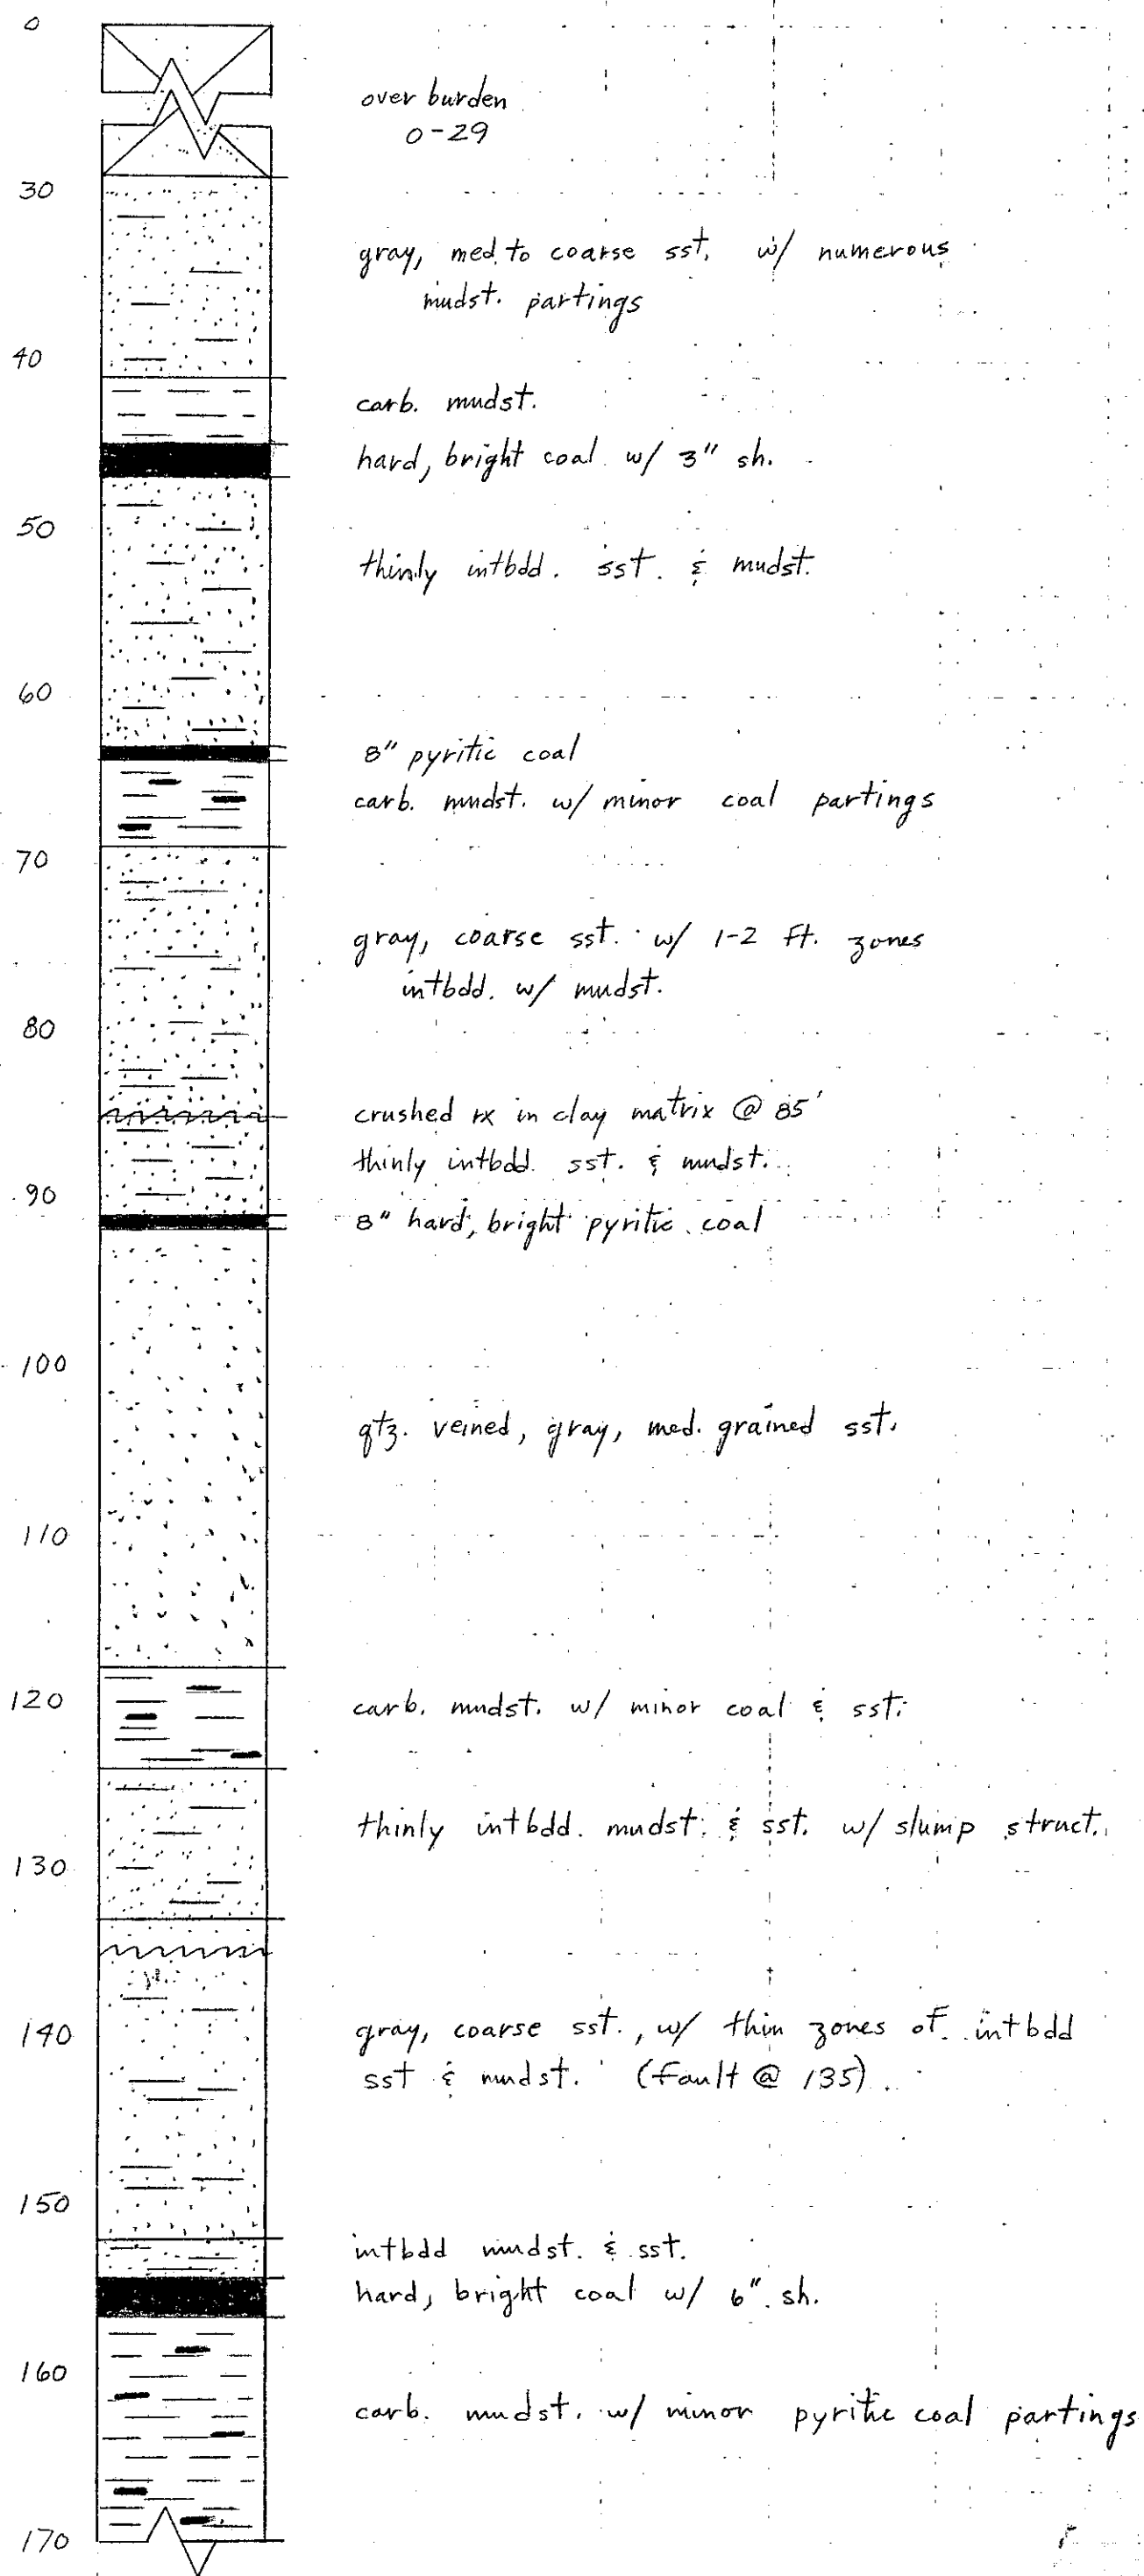 0
over burden
0-29
30
gray, med. to coarse sst. w/ numerous
mudst. partings
40
carb. mudst.
hard, bright coal w/ 3" sh.
50
thinly intbdd. sst. & mudst.
60
8" pyritic coal
carb. mudst. w/ minor coal partings
70
gray, coarse sst. w/ 1-2 ft. zones
intbdd. w/ mudst.
80
crushed rx in clay matrix @ 85'
thinly intbdd. sst. & mudst.
90
8" hard, bright pyritic coal
100
qtz. veined, gray, med. grained sst.
110
120
carb. mudst. w/ minor coal & sst.
thinly intbdd. mudst. & sst. w/ slump struct.
130
140
gray, coarse sst., w/ thin zones of intbdd
sst & mudst. (fault @ 135)
150
intbdd mudst. & sst.
hard, bright coal w/ 6" sh.
160
carb. mudst. w/ minor pyritic coal partings
170